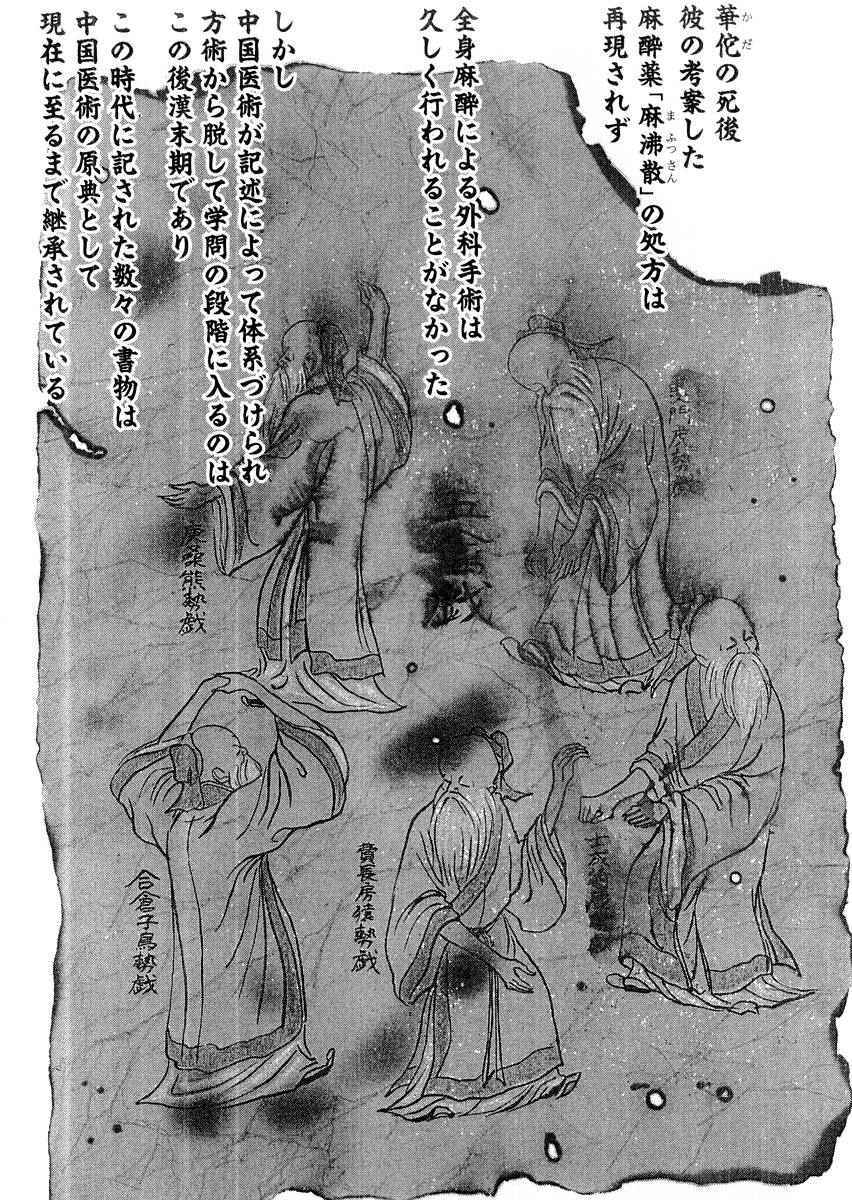 華佗の死後
彼の考案した
麻酔薬「麻沸散」の処方は
再現されず
全身麻酔による外科手術は
久しく行われることがなかった
しかし
中国医術が記述によって体系づけられ
方術から脱して学問の段階に入るのは
この後漢末期であり
この時代に記された数々の書物は
中国医術の原典として
現在に至るまで継承されている
熊勢戯
費長房猿勢戯
合倉子鳥勢戯